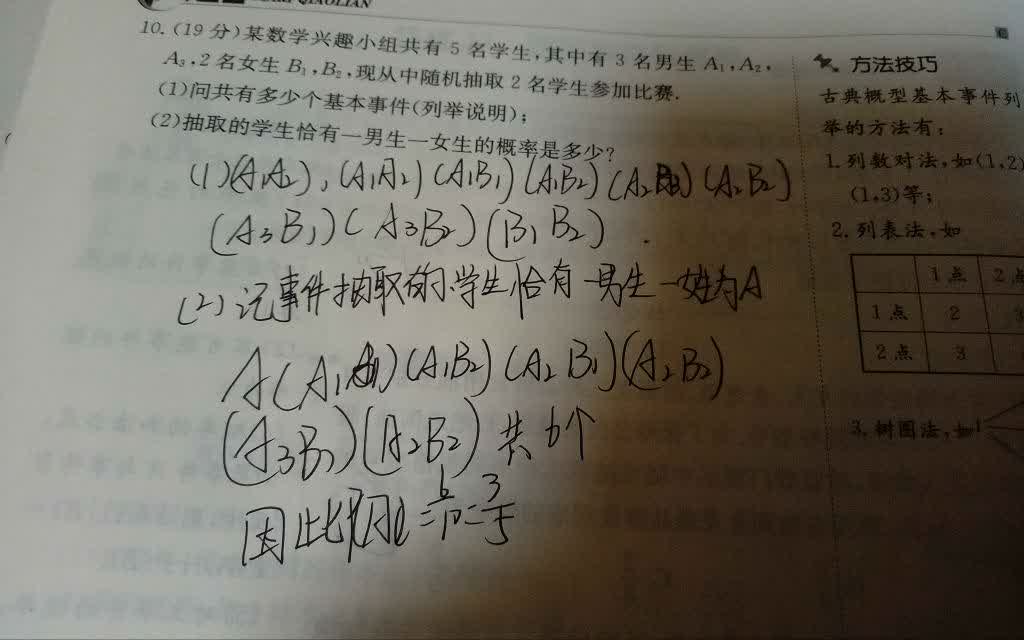 QIAOLIAN
10.(19分)某数学兴趣小组共有5名学生,其中有3名男生A₁,A₂,
A₃,2名女生B₁,B₂,现从中随机抽取2名学生参加比赛.
(1)问共有多少个基本事件(列举说明);
(2)抽取的学生恰有一男生一女生的概率是多少?
(1)(A₁A₂),(A₁A₂)(A₁B₁)(A₁B₂)(A₂B₁)(A₂B₂)
(A₃B₁)(A₃B₂)(B₁B₂).
(2)记事件抽取的学生恰有一男生一女生为A
A(A₁B₁)(A₁B₂)(A₂B₁)(A₂B₂)
(A₃B₁)(A₂B₂)共6个
因此 =6/10=3/5
方法技巧
古典概型基本事件列
举的方法有:
1.列数对法,如(1,2)
(1,3)等;
2.列表法,如
1点 2点
1点 2 3
2点 3
3.树图法,如1